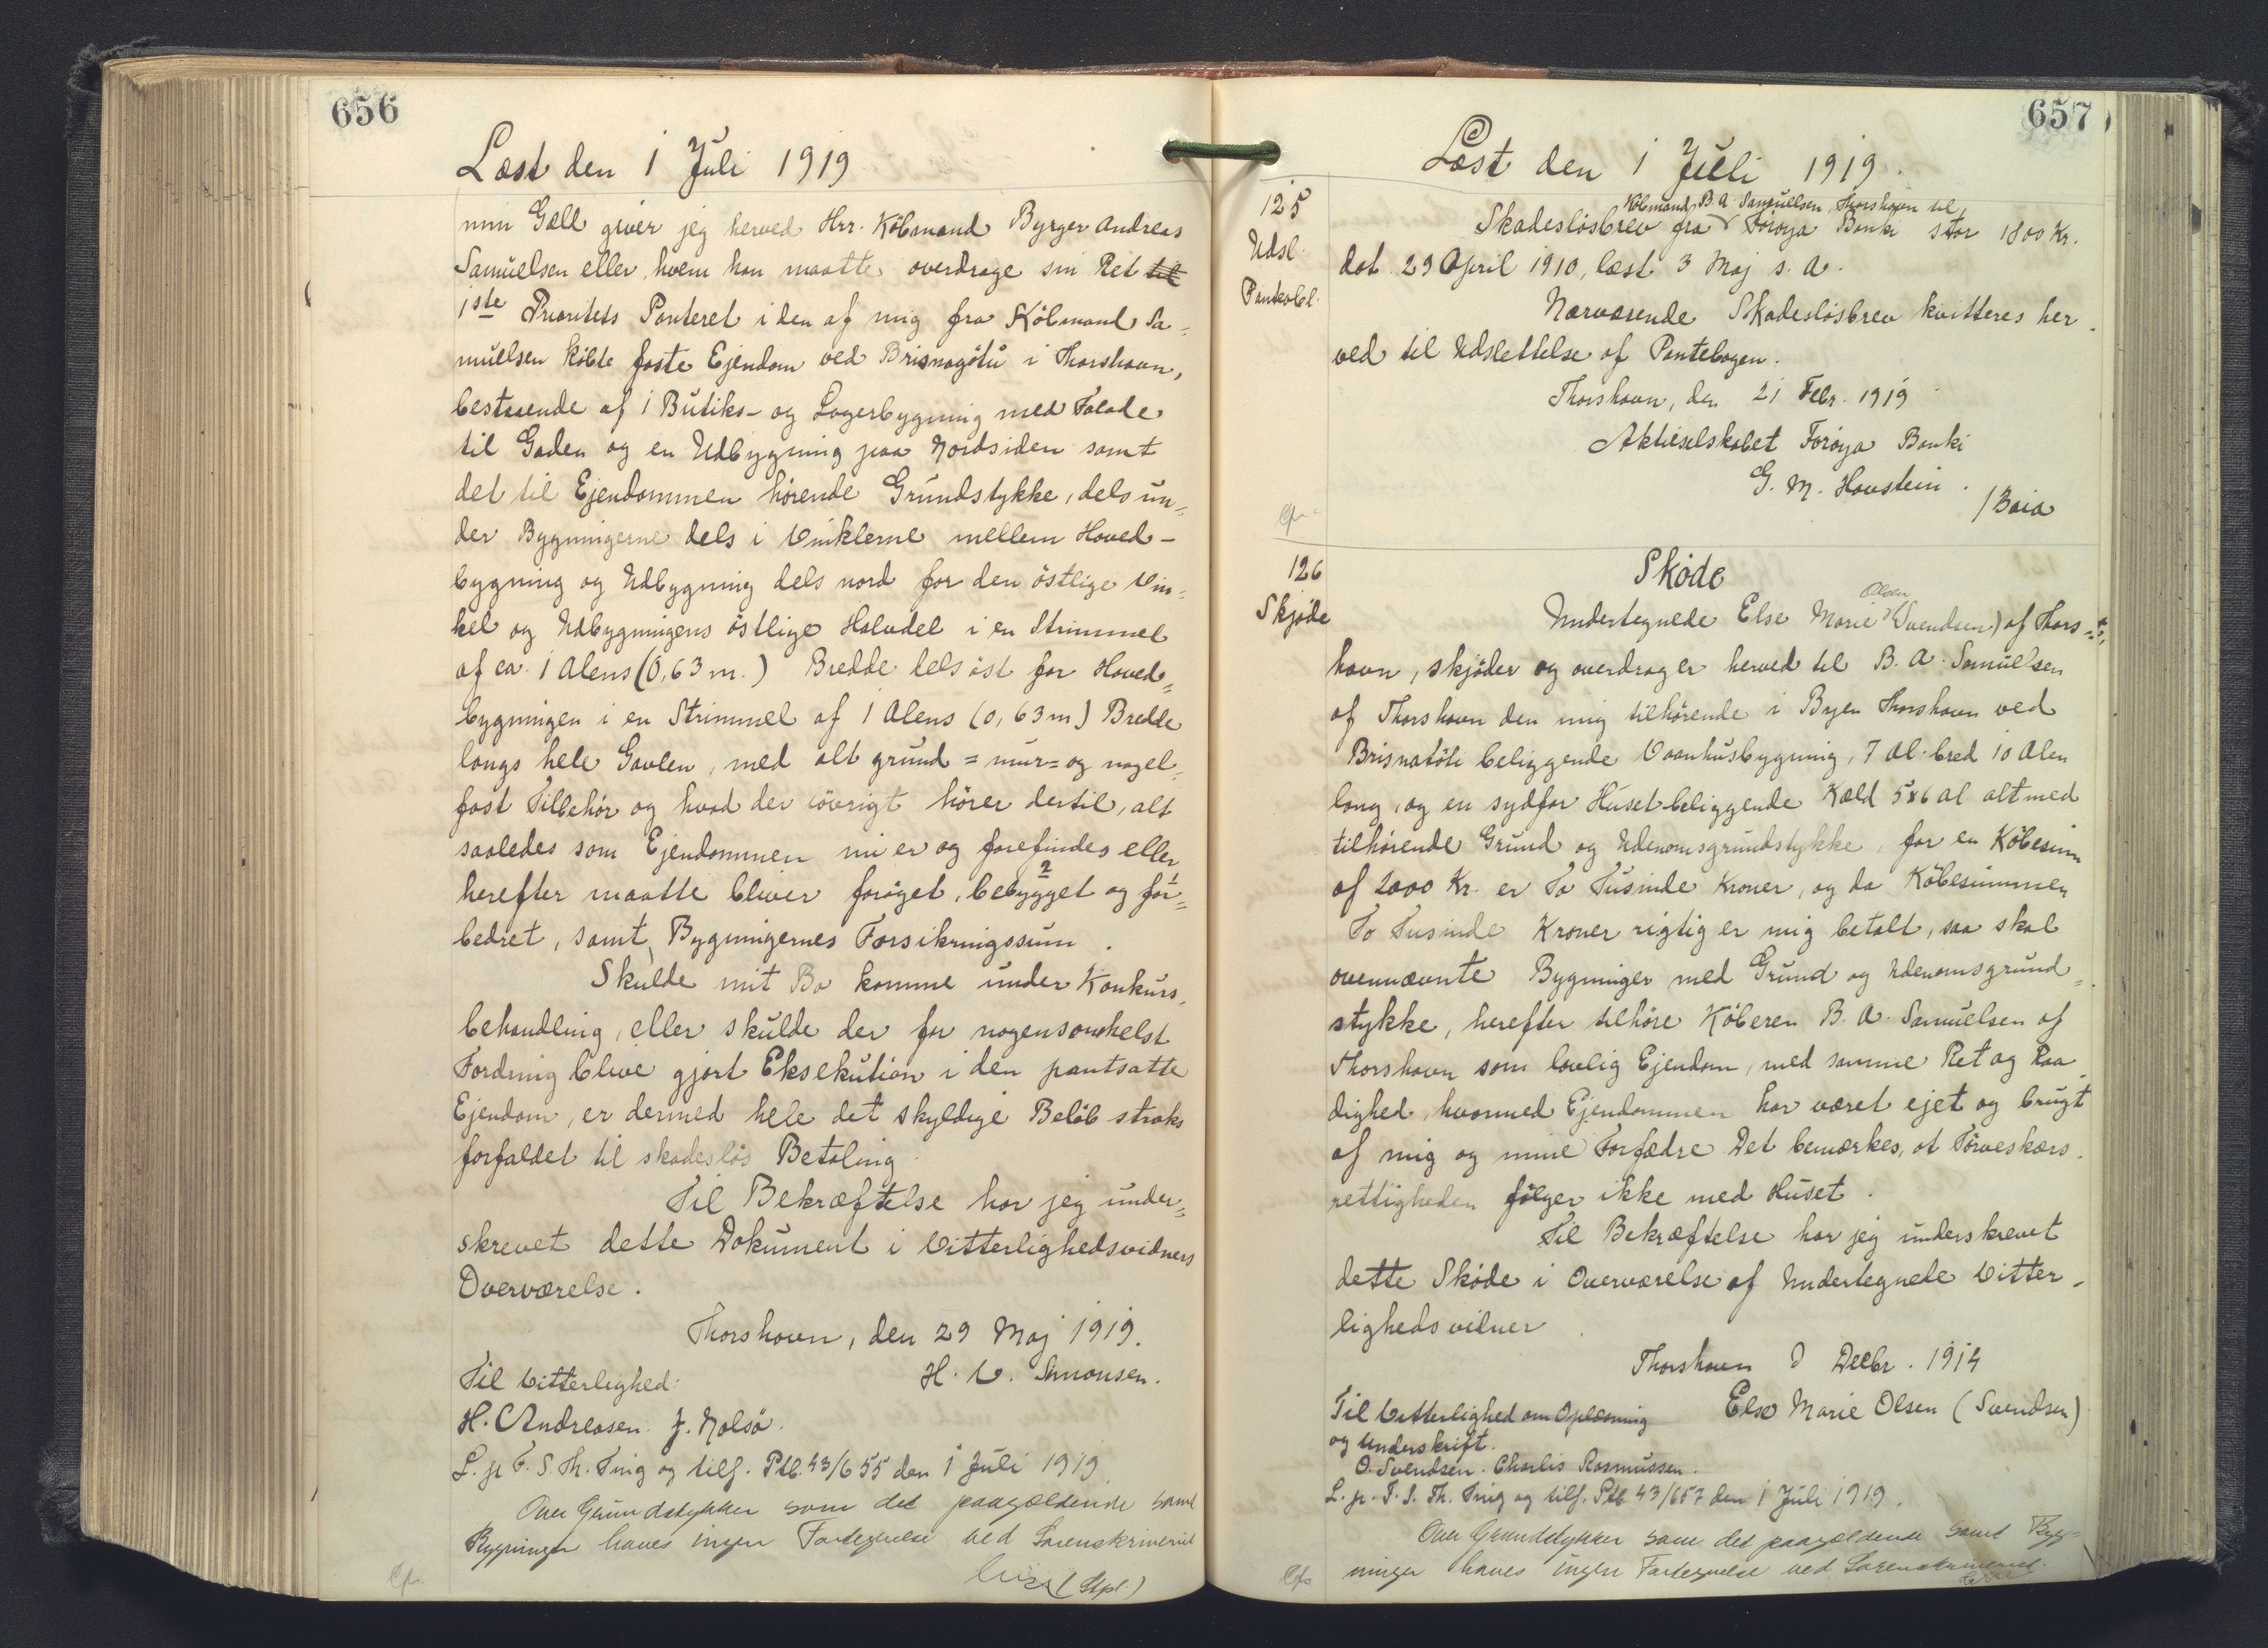 656
Læst den 1 Juli 1919
min Gæld giver jeg herved Hrr. Köbmand Byrger Andreas
Samuelsen eller hvem han maatte overdrage sin Ret til
1ste Prioritets Panteret i den af mig fra Köbmand Sa=
muelsen köbte faste Ejendom ved Brisnagötu i Thorshavn,
bestaaende af 1 Butiks- og Lagerbygning med Facade
til Gaden og en Udbygning paa Nordsiden samt
det til Ejendommen hörende Grundstykke, dels un=
der Bygningerne dels i Vinklerne mellem Hoved-
bygning og Udbygning dels nord for den östlige Vin=
kel og Udbygningens östlige Halvdel i en Strimmel
af ca. 1 Alens (0,63 m.) Bredde dels öst for Hoved=
bygningen i en Strimmel af 1 Alens (0,63 m) Bredde
langs hele Gavlen, med alt grund = mur= og nagel=
fast Tilbehör og hvad der iövrigt hörer dertil, alt
saaledes som Ejendommen nu er og forefindes eller
herefter maatte bliver foröget, bebygget og for=
bedret, samt Bygningernes Forsikringssum.
Skulde mit Bo komme under Konkurs=
behandling, eller skulde der for nogensomhelst
Fordring blive gjort Eksekution i den pantsatte
Ejendom, er dermed hele det skyldige Belöb straks
forfaldet til skadeslös Betaling.
Til Bekræftelse har jeg under=
skrevet dette Dokument i Vitterlighedsvidners
Overværelse.
Thorshavn, den 29 Maj 1919.
H. V. Simonsen.
Til Vitterlighed:
H. C Andreasen. J. Nolsö.
L. p. F. S. Th. Ting og tilf. Ptb. 43/655 den 1 Juli 1919
Over Grundstykker som det paagældende samt
Bygninger haves ingen Fortegnelse ved Sorenskriveriet
(Stpl.)
657
Læst den 1 Juli 1919.
125
Udsl.
Pantobl.
Köbmand B. A. Samuelsen, Thorshavn til
Skadeslösbrev fra Föroya Banki stor 1800 Kr.
dat. 29 April 1910, læst 3 Maj s. A.
Nærværende Skadeslösbrev kvitteres her=
ved til Udslettelse af Pantebogen.
Thorshavn, den 21 Febr. 1919
Aktieselskabet Föroya Banki
G. M. Havstein.
/Baia
126
Skjöde
Sköde
Olsen
Undertegnede Else Marie (Svendsen) af Thors=
havn, skjöder og overdrager herved til B. A. Samuelsen
af Thorshavn den mig tilhörende i Byen Thorshavn ved
Brisnatöti beliggende Vaanhusbygning, 7 Al. bred 10 Alen
lang, og en sydfor Huset beliggende Kæld 5x6 al alt med
tilhörende Grund og Udenomsgrundstykke, for en Köbesum
af 2000 Kr. er To Tusinde Kroner, og da Köbesummen
To Tusinde Kroner rigtig er mig betalt, saa skal
ovennævnte Bygninger med Grund og Udenomsgrund=
stykke, herefter tilhöre Köberen B. A. Samuelsen af
Thorshavn som lovlig Ejendom, med samme Ret og Raa=
dighed, hvormed Ejendommen har været ejet og brugt
af mig og mine Forfædre. Det bemærkes, at Törveskærs=
rettigheden fölger ikke med Huset.
Til Bekræftelse har jeg underskrevet
dette Sköde i Overværelse af Undertegnede Vitter-
lighedsvidner
Thorshavn D Decbr. 1914
Else Marie Olsen (Svendsen)
Til Vitterlighed om Oplæsning
og Underskrift.
O. Svendsen. Charlis Rasmussen.
L. p. F. S. Th. Ting og tilf. Ptb. 43/657 den 1 Juli 1919.
Over Grundstykker som det paagældende samt Byg=
ninger haves ingen Fortegnelse ved Sorenskriveriet.